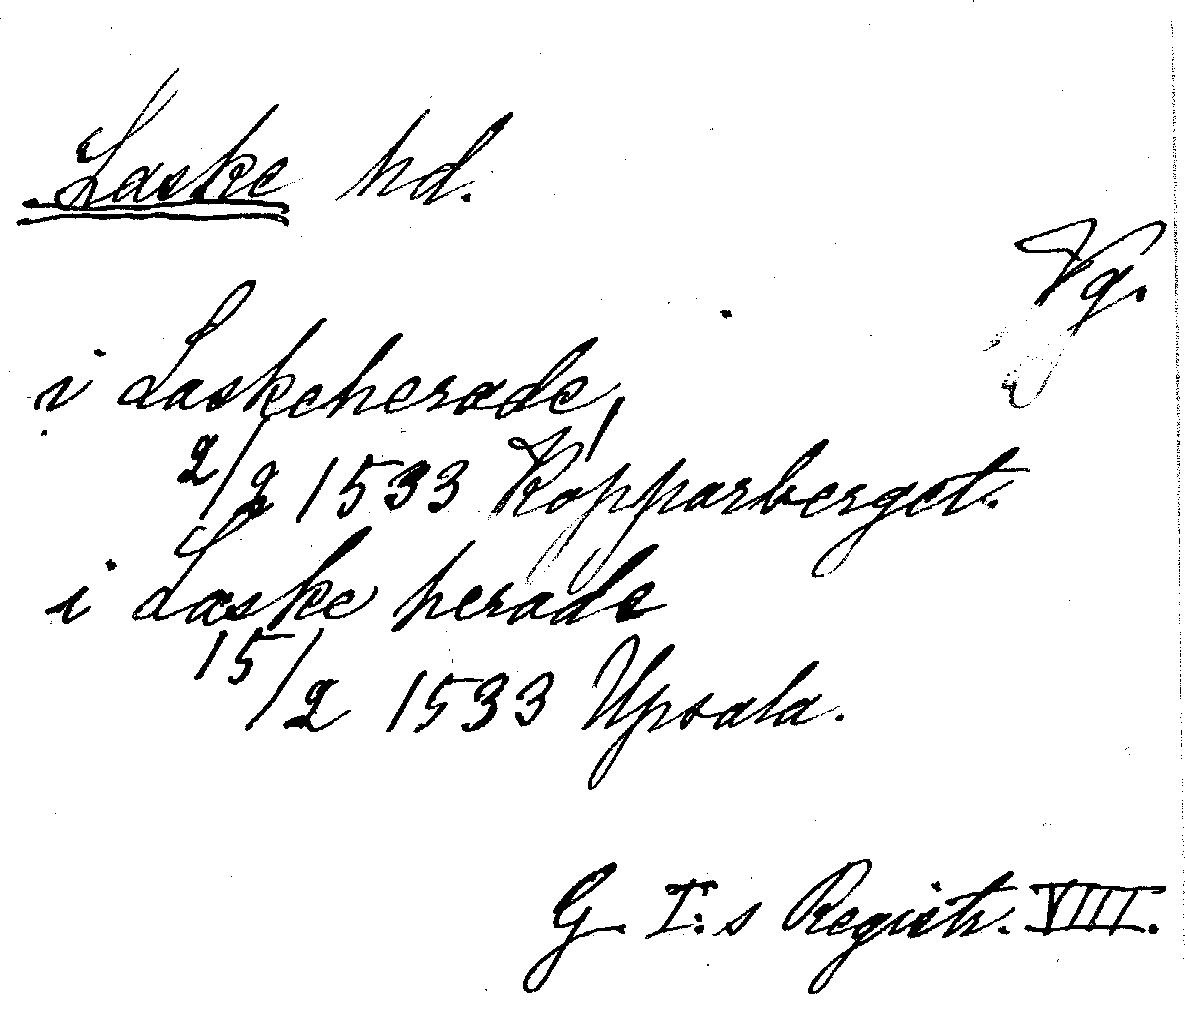 Laske hd.
Vg.
i Laskeherade,
2/2 1533 Kopparberget.
i Laske herade
15/2 1533 Upsala.
G. I:s Registr. VIII.